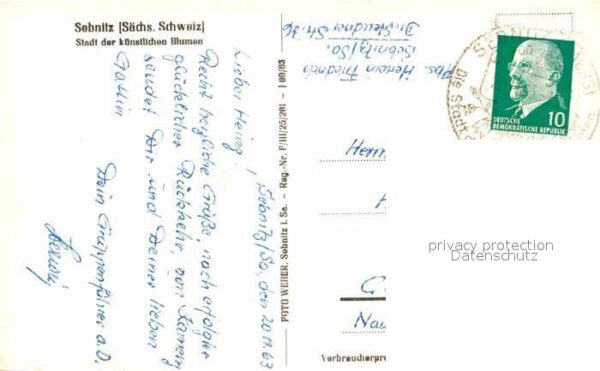 Sebnitz (Sächs. Schweiz)
Stadt der künstlichen Blumen
Sebnitz/Sa., den 20.11.63
Lieber Heinz!
Recht herzliche Grüße, nach erfolgter
glücklicher Rückkehr, von
sendet Dir und Deiner lieben
Gattin
Dein Gruppenführer a.D.
FOTO WEBER, Sebnitz i. Sa. - Reg.-Nr. F/III/25/261 - I 80/63
Abs. Friedrich
Sebnitz/Sa.
Str. 36
DEUTSCHE
DEMOKRATISCHE REPUBLIK
10
Die Stadt
Herrn
privacy protection
Datenschutz
Nau
Verbraucherpre